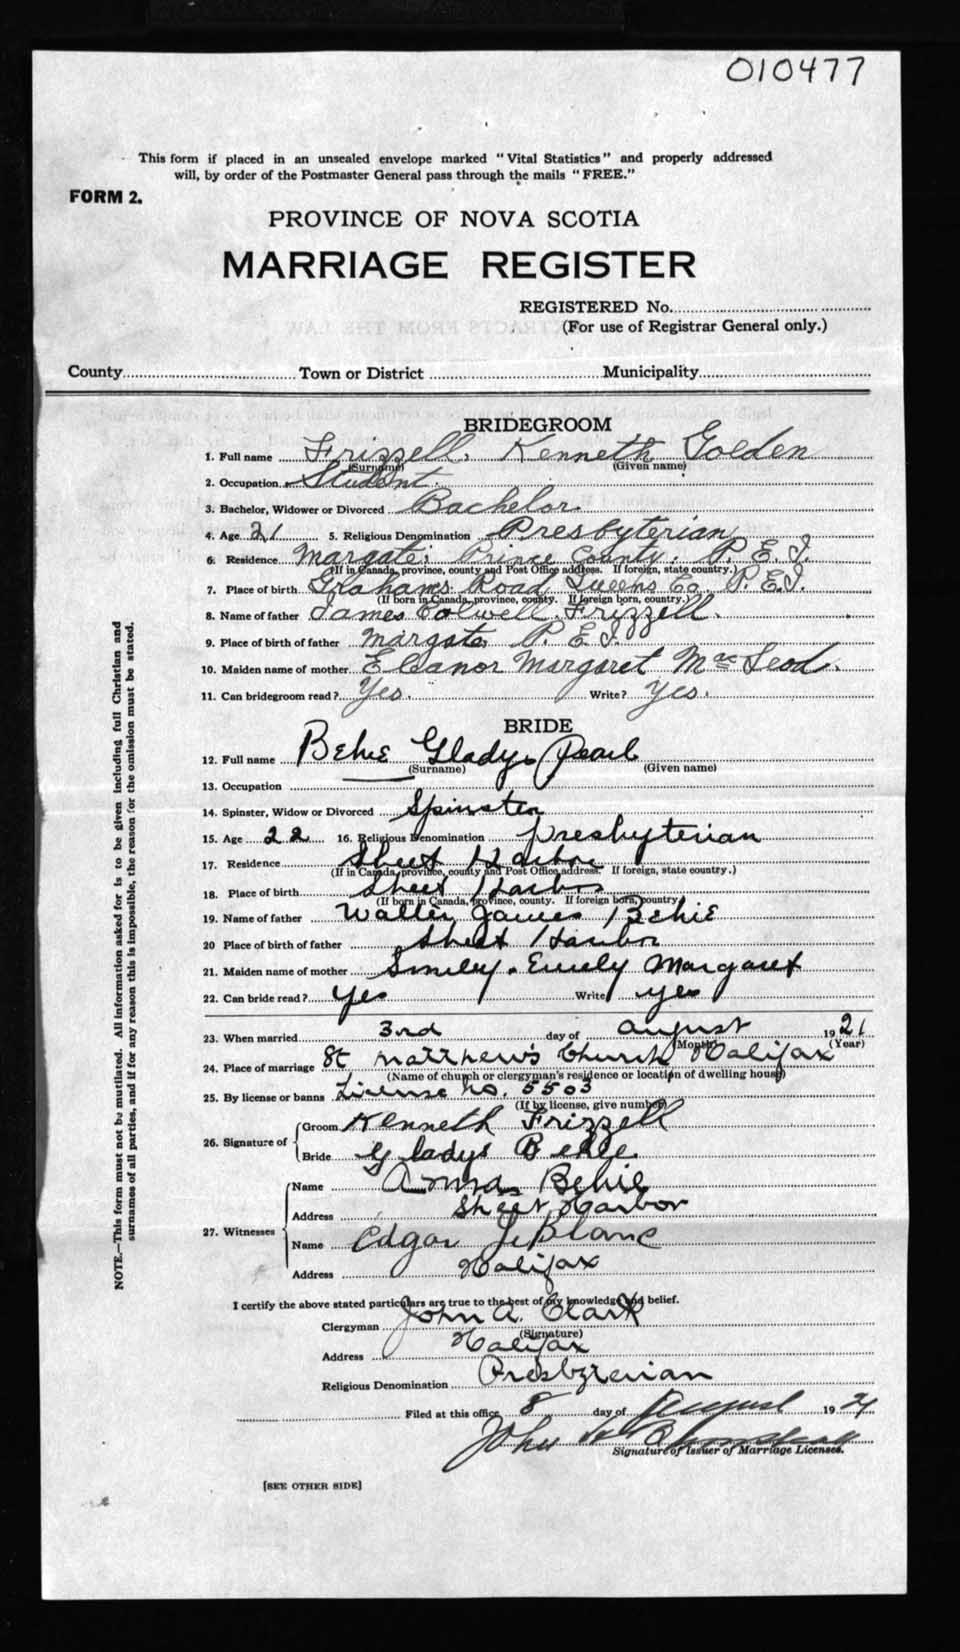 010477
This form if placed in an unsealed envelope marked "Vital Statistics" and properly addressed
will, by order of the Postmaster General pass through the mails "FREE."
FORM 2.
PROVINCE OF NOVA SCOTIA
MARRIAGE REGISTER
REGISTERED No.
(For use of Registrar General only.)
County Town or District Municipality
BRIDEGROOM
1. Full name Frizzell, Kenneth Golden
(Surname) (Given name)
2. Occupation Student
3. Bachelor, Widower or Divorced Bachelor
4. Age 21 5. Religious Denomination Presbyterian
6. Residence Margate, Prince County, P.E.I.
(If in Canada, province, county and Post Office address. If foreign, state country.)
7. Place of birth Grahams Road Queens Co. P.E.I.
(If born in Canada, province, county. If foreign born, country.)
8. Name of father James Colwell Frizzell.
9. Place of birth of father Margate P.E.I.
10. Maiden name of mother Eleanor Margaret MacLeod.
11. Can bridegroom read? Yes. Write? Yes.
BRIDE
12. Full name Behie Gladys Pearl
(Surname) (Given name)
13. Occupation
14. Spinster, Widow or Divorced Spinster
15. Age 22 16. Religious Denomination Presbyterian
17. Residence Sheet Harbor
(If in Canada, province, county and Post Office address. If foreign, state country.)
18. Place of birth Sheet Harbor
(If born in Canada, province, county. If foreign born, country.)
19. Name of father Walter James Behie
20 Place of birth of father Sheet Harbor
21. Maiden name of mother Smiley, Emily Margaret
22. Can bride read? Yes Write yes
23. When married 3rd day of August 1921
(Month) (Year)
24. Place of marriage St Matthew's Church Halifax
(Name of church or clergyman's residence or location of dwelling house)
25. By license or banns License No. 5503
(If by license, give number)
26. Signature of Groom Kenneth Frizzell
Bride Gladys Behie
27. Witnesses Name Anna Behie
Address Sheet Harbor
Name Edgar LeBlanc
Address Halifax
I certify the above stated particulars are true to the best of my knowledge and belief.
Clergyman John A. Clark
(Signature)
Address Halifax
Religious Denomination Presbyterian
Filed at this office 8 day of August 1921
John
Signature of Issuer of Marriage Licenses.
[SEE OTHER SIDE]
NOTE.—This form must not be mutilated. All information asked for is to be given including full Christian and
surnames of all parties, and if for any reason this is impossible, the reason for the omission must be stated.